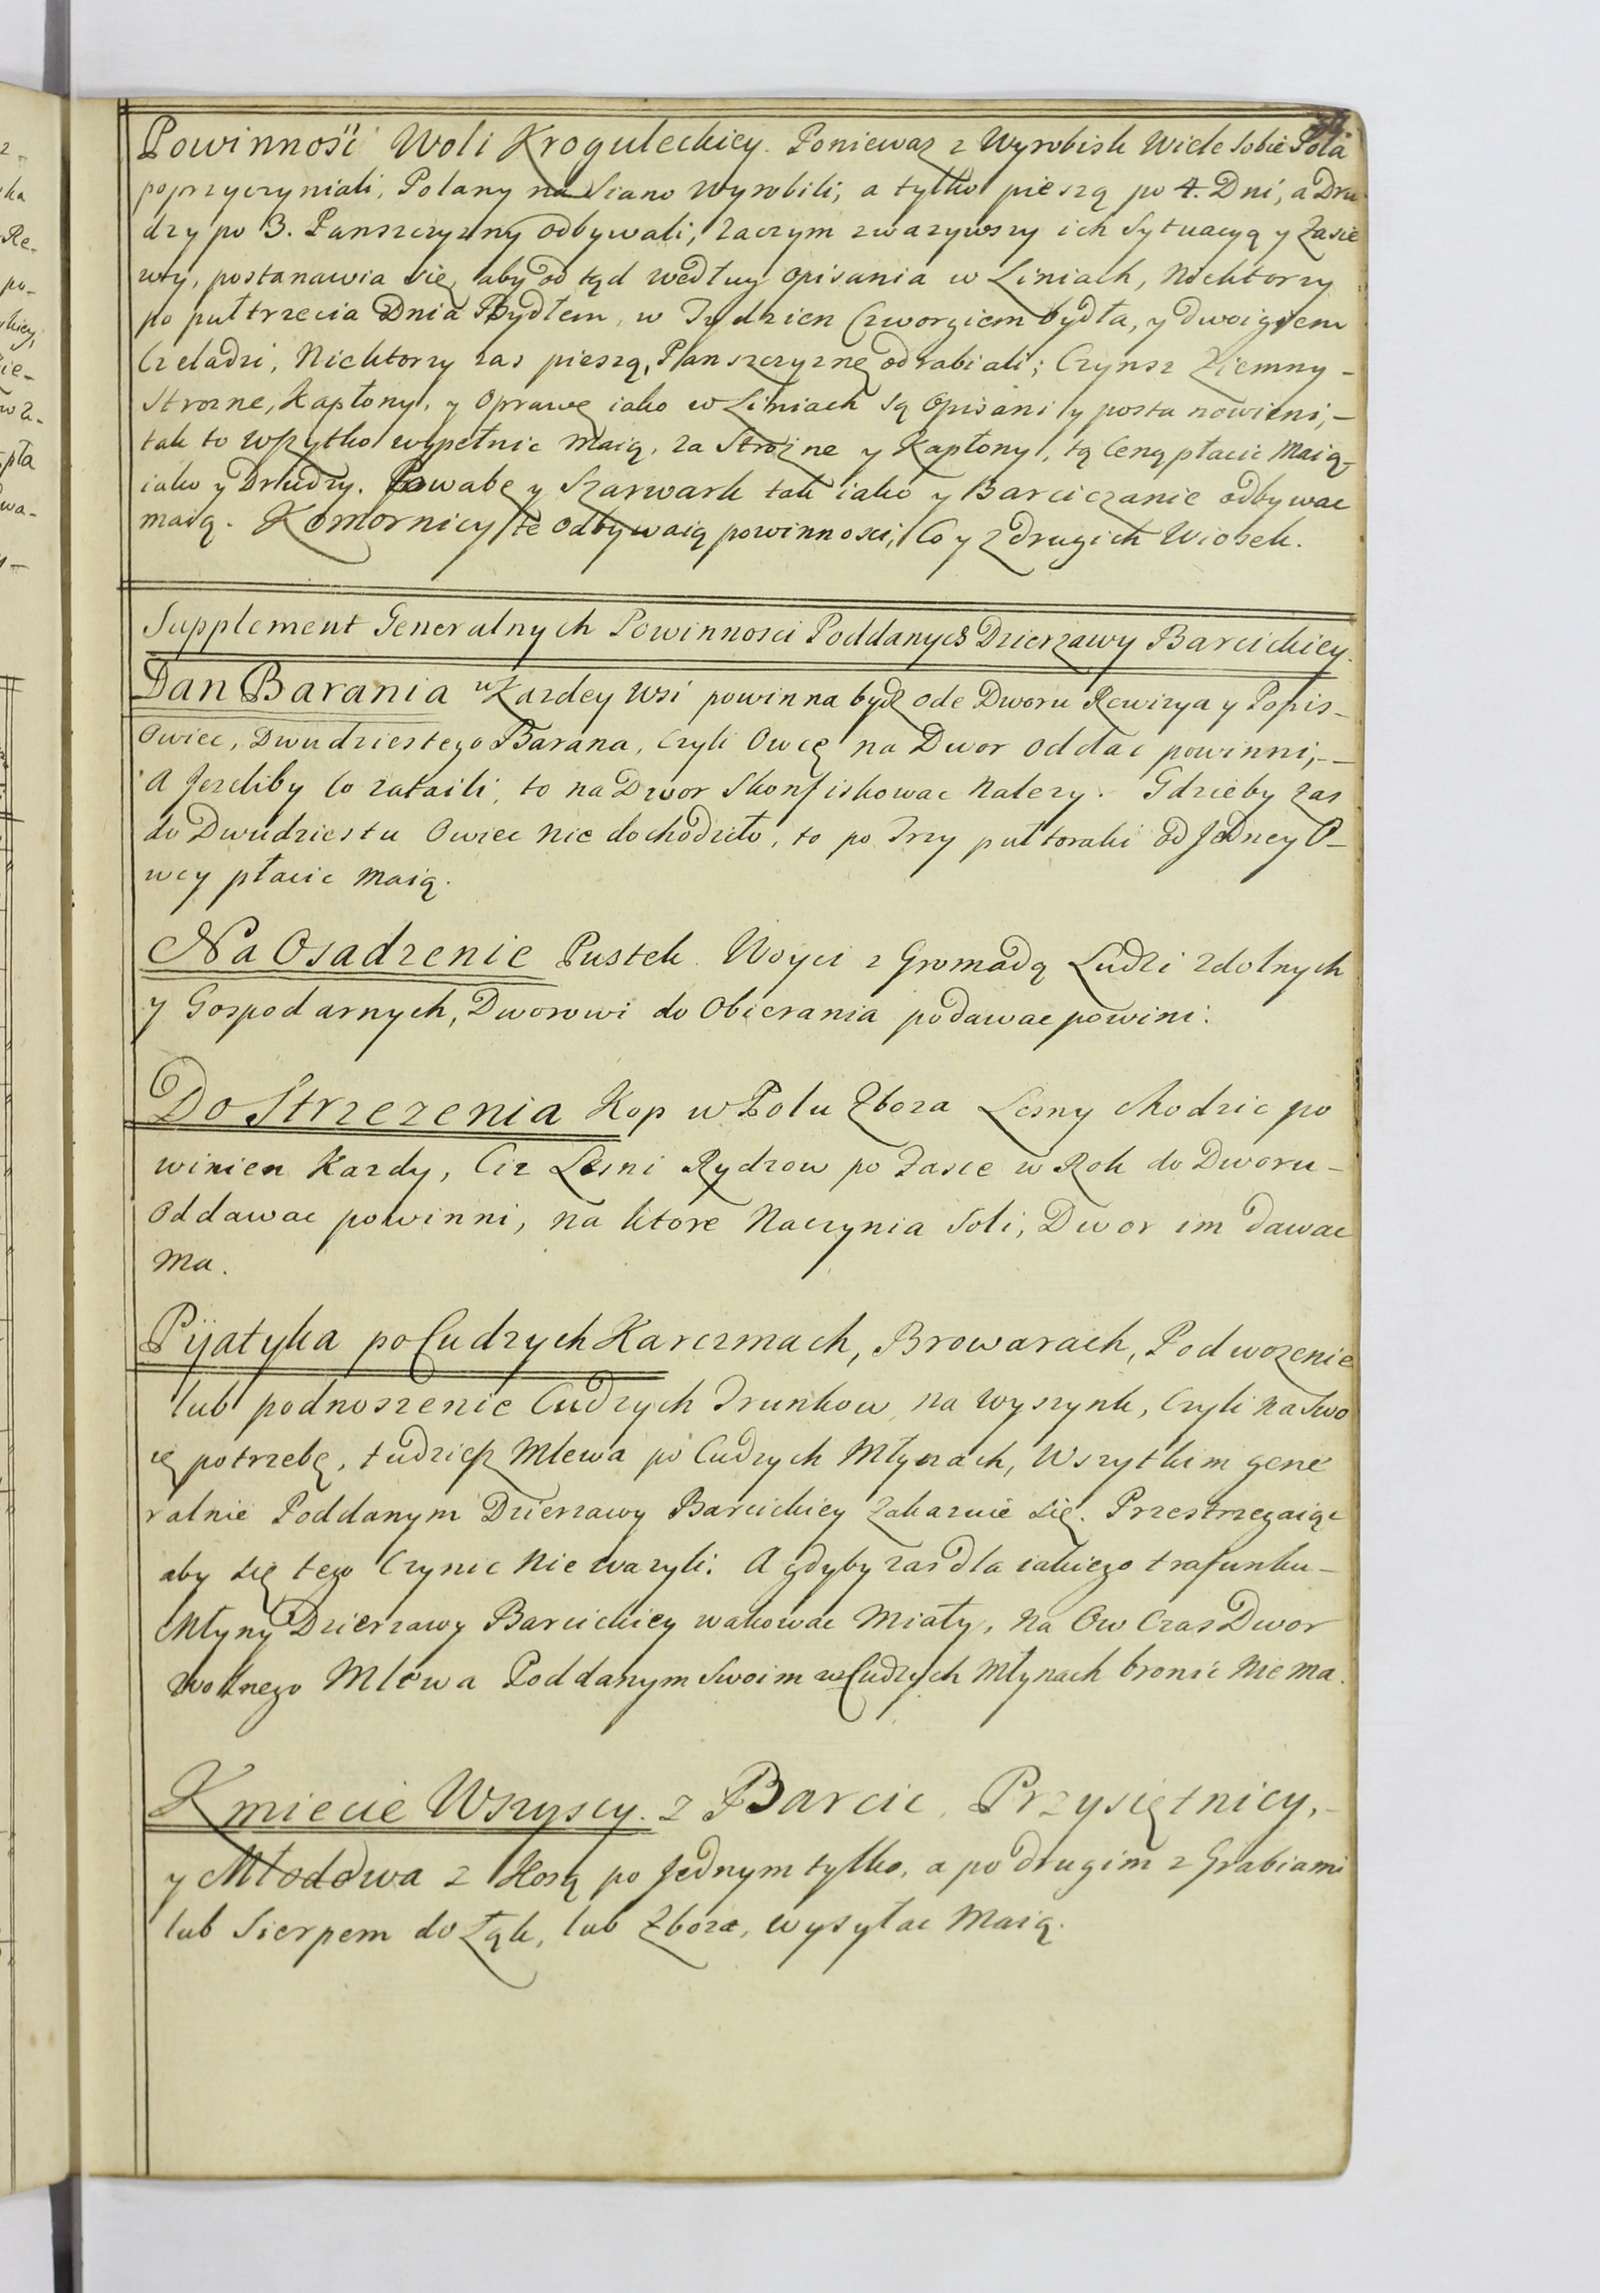 Powinność Woli Kroguleckiey. Poniewaz z Wyrobisk Wiele Sobie Pola
poprzyczyniali, Polany na Siano wyrobili, a tylko pieszą po 4. Dni, a Dru-
dzy po 3. Panszczyzny odbywali, zaczym zwazywszy ich Sytuacyą y Zasie
wy, postanawia się, aby od tąd według opisania w Liniach, Niektorzy
po pułtrzecia Dnia Bydłem, w Tydzien Czworgiem bydła, y dwoigiem
Czeladzi, Niektorzy zas pieszą, Panszczyznę odrabiali; Czynsz Ziemny -
Strozne, Kapłony, y Oprawę iako w Liniach są Opisani y postanowieni, -
tak to wszytko wypełnic maią, za Strozne y Kapłony, tą Ceną płacic Maią
iako y Drudzy. Powabę y Szarwark tak iako y Barciczanie odbywac
maią. Komornicy te odbywaią powinnosci, Co y z drugich Wiosek.
Supplement Generalnych Powinnosci Poddanych Dzierzawy Barcickiey.
Dan Barania w Kazdey Wsi powinna bydz ode Dworu Rewizya y Popis -
Owiec, Dwudziestego Barana, czyli Owcę na Dwor oddac powinni, -
A Jezeliby Co zataili, to na Dwor Skonfiskowac Nalezy. Gdzieby zas
do Dwudziestu Owiec nie dochodziło, to po Trzy pułtoraki od Jedney O-
wcy płacic Maią.
Na Osadzenie Pustek Woyci z Gromadą Ludzi zdolnych
y Gospodarnych, Dworowi do Obierania podawac powini.
Do Strzezenia Kop w Polu Zboza Lesny chodzic po
winien Kazdy, Ciz Lesni Rydzow po Fasce w Rok do Dworu -
Oddawac powinni, na ktore Naczynia Soli, Dwor im dawac
Ma.
Pijatyka po Cudzych Karczmach, Browarach, Podwozenie
lub podnoszenie Cudzych Trunkow na wyszynk, czyli na Swo
ię potrzebę, tudziesz Mlewa po Cudzych Młynach, Wszytkim gene
ralnie Poddanym Dzierzawy Barcickiey Zakazuie się. Przestrzegaiąc
aby się tego Czynic nie wazyli. A gdyby zas dla iakiego trafunku -
Młyny Dzierzawy Barcickiey wakowac Miały, Na Ow Czas Dwor
wolnego Mlewa Poddanym Swoim w Cudzych Młynach bronić Nie Ma.
Kmiecie Wszyscy. z Barcic, Przysiętnicy, -
y Młodowa z Kosą po Jednym tylko, a po drugim z Grabiami
lub Sierpem do Łąk, lub Zboza, wysyłac Maią.